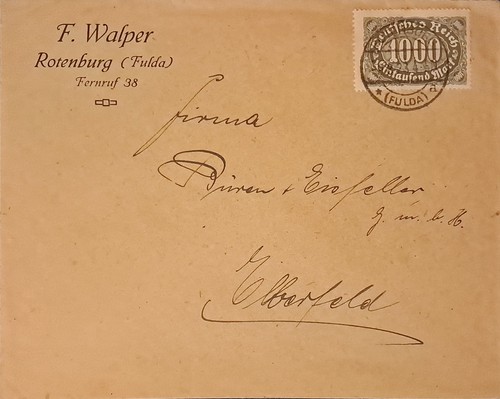 F. Walper
Rotenburg (Fulda)
Fernruf 38
Deutsches Reich
1000
Eintausend Mark
* (FULDA)
Firma
Büren & Eisfeller
G. m. b. H.
Elberfeld